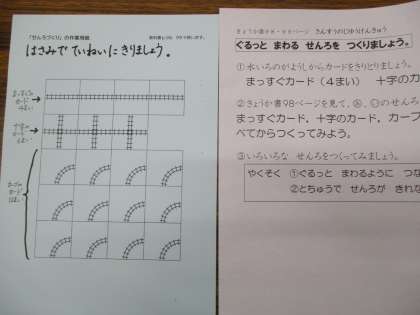 「せんろづくり」の作業用紙
はさみで ていねいに きりましょう。
まっすぐ
カード
4まい
十字の
カード
カーブの
カード
さんすうのじゆうけんきゅう
ぐるっと まわる せんろを つくりましょう。
①水いろのがようしからカードをきりとりましょう。
まっすぐカード（4まい） 十字のカ
②きょうか書98ページを見て、あ、いのせんろ
まっすぐカード、十字のカード、カーブ
べてからつくってみよう。
③いろいろな せんろをつくってみましょう。
やくそく ①ぐるっと まわるように つな
②とちゅうで せんろが きれな